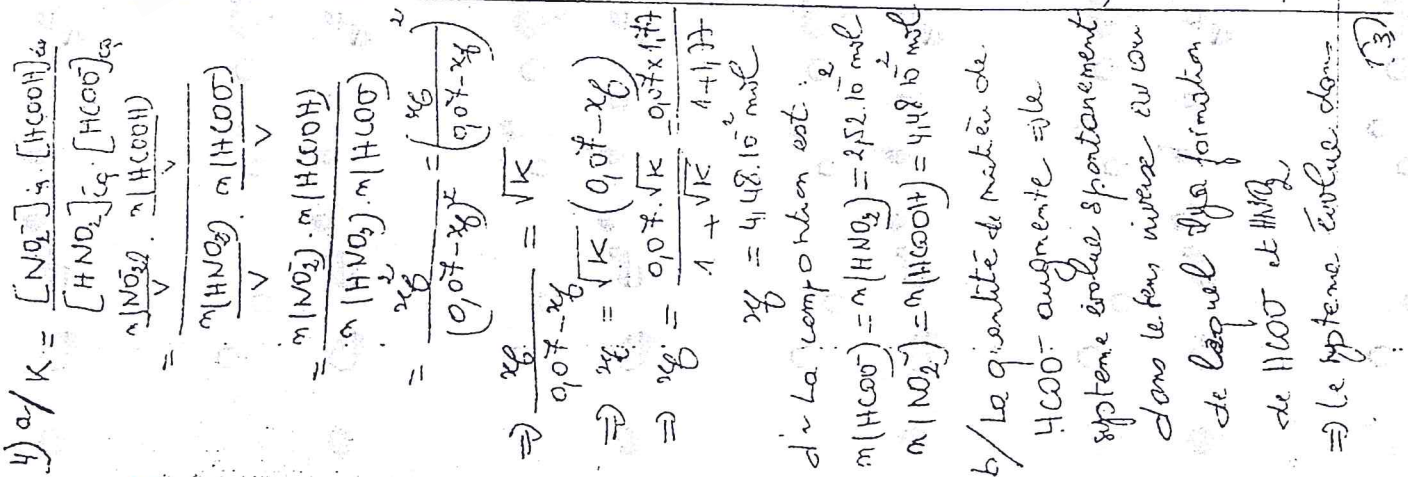 4) a/ K = [NO2-]éq . [HCOOH]éq / [HNO2]éq . [HCOO-]éq
= n(NO2-)/V . n(HCOOH)/V / n(HNO2)/V . n(HCOO-)/V
= n(NO2-) . n(HCOOH) / n(HNO2) . n(HCOO-)
= xf² / (0,07-xf)² = (xf / 0,07-xf)²
=> xf / 0,07-xf = √K
=> xf = √K (0,07-xf)
=> xf = 0,07.√K / 1+√K = 0,07x1,77 / 1+1,77
xf = 4,48.10-2 mol
d'où La composition est :
n(HCOO-) = n(HNO2) = 2,52.10-2 mol
n(NO2-) = n(HCOOH) = 4,48 10-2 mol
b/ La quantité de matière de
HCOO- augmente => le
système évolue spontanement
dans le sens inverse au cou
de laquel il y a formation
de HCOO- et HNO2
=> Le systeme évolue dans
(3)